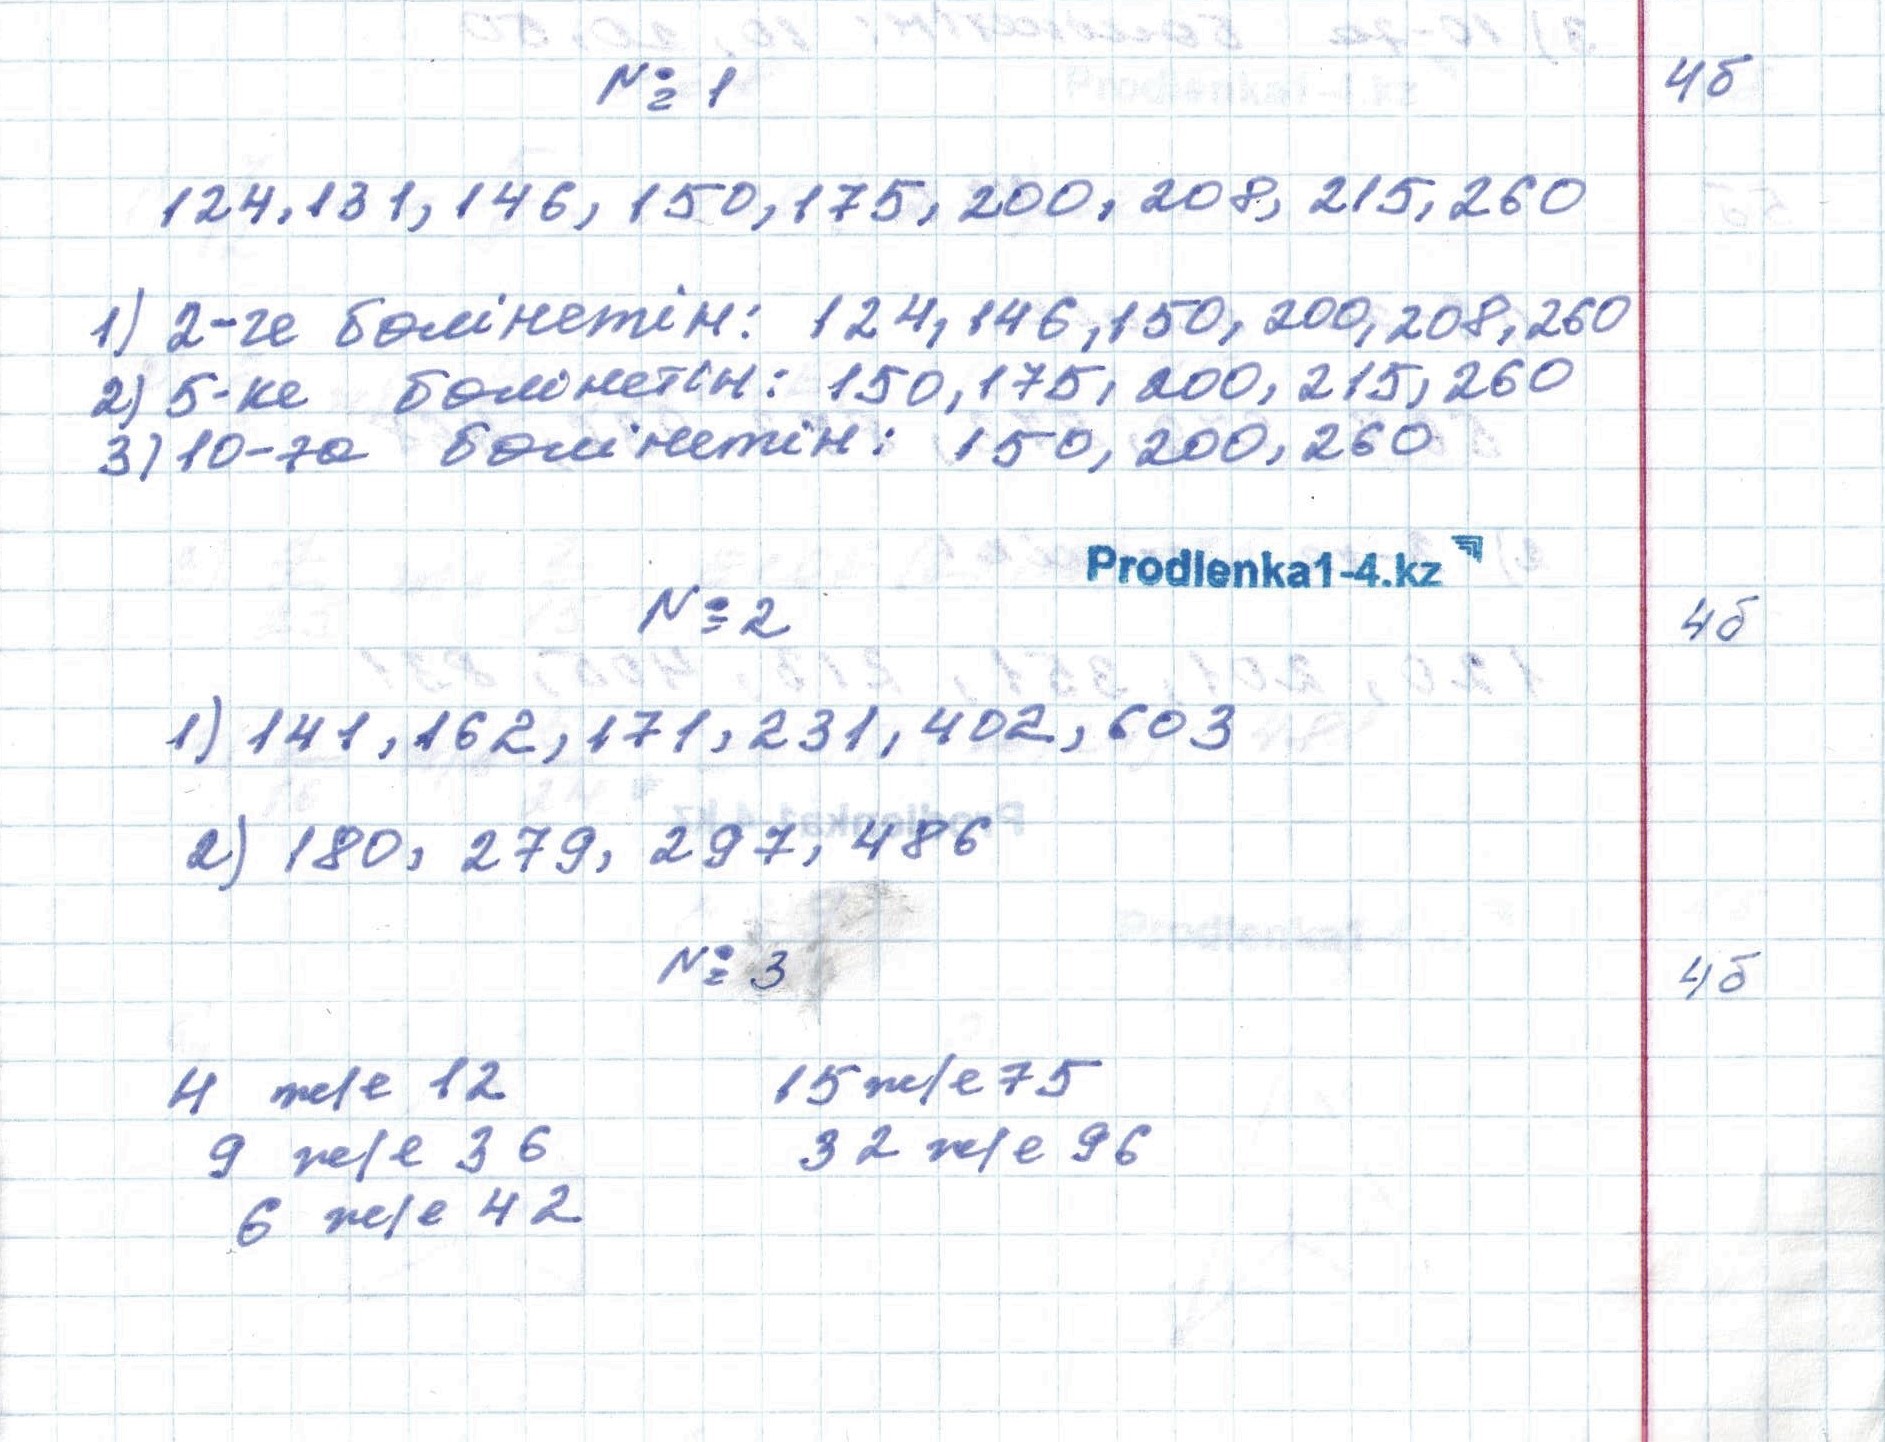 № 1
4б
124, 131, 146, 150, 175, 200, 208, 215, 260
1) 2-ге бөлінетін: 124, 146, 150, 200, 208, 260
2) 5-ке бөлінетін: 150, 175, 200, 215, 260
3) 10-ға бөлінетін: 150, 200, 260
Prodlenka1-4.kz
№ 2
4б
1) 141, 162, 171, 231, 402, 603
2) 180, 279, 297, 486
№ 3
4б
4 ж/е 12 15 ж/е 75
9 ж/е 36 32 ж/е 96
6 ж/е 42